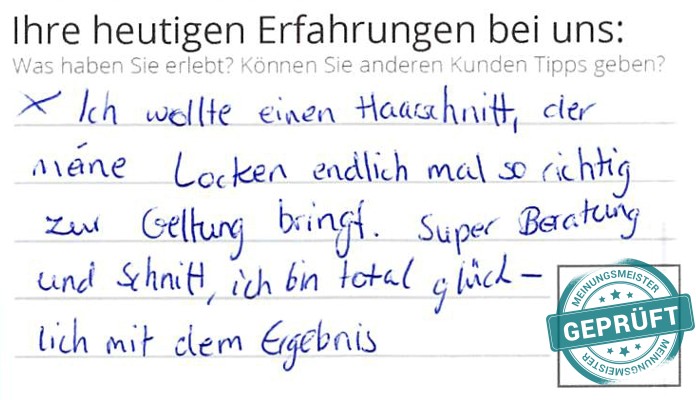 Ihre heutigen Erfahrungen bei uns:
Was haben Sie erlebt? Können Sie anderen Kunden Tipps geben?
x Ich wollte einen Haarschnitt, der
meine Locken endlich mal so richtig
zur Geltung bringt. Super Beratung
und Schnitt, ich bin total glück-
lich mit dem Ergebnis
MEINUNGSMEISTER
GEPRÜFT
MEINUNGSMEISTER